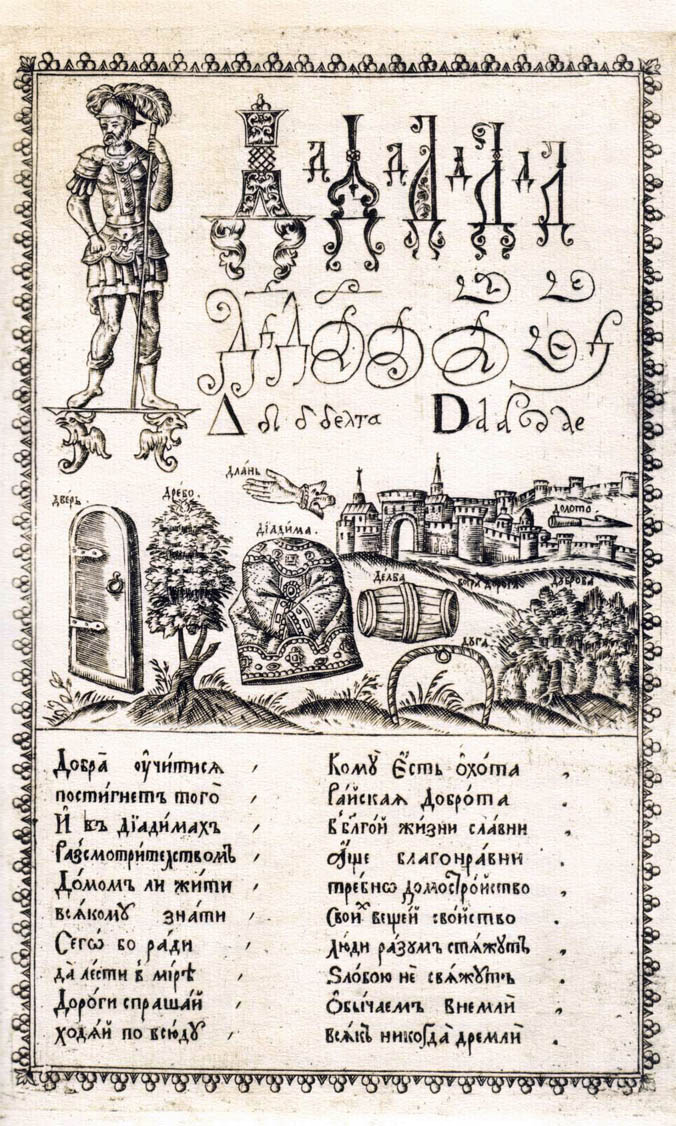 Д д Д д Д д Д д Д
Δ δ δ δ δελτα D d d d d de
двєрь.
дрєво.
длань
дїадима.
долото
дєлва
гора дорога
дуброва
дуга
Добра оучитися , Кому Єсть охота ,
постигнетъ того , Райская Доброта .
И въ Дїадимахъ , в благой жизни славни ,
Разсмотрителствомъ , Аще благонравни .
Домомъ ли жити , требнѡ домостройство ,
всякому знати , Свойх вещей свойство .
Сегѡ бо ради люди разумъ стяжутъ ,
да лести в мірѣ , Ѕлобою не свяжутъ .
Дороги спрашай , Обычаемъ внемли ,
ходяй по всюду , всякъ никогда дремли .